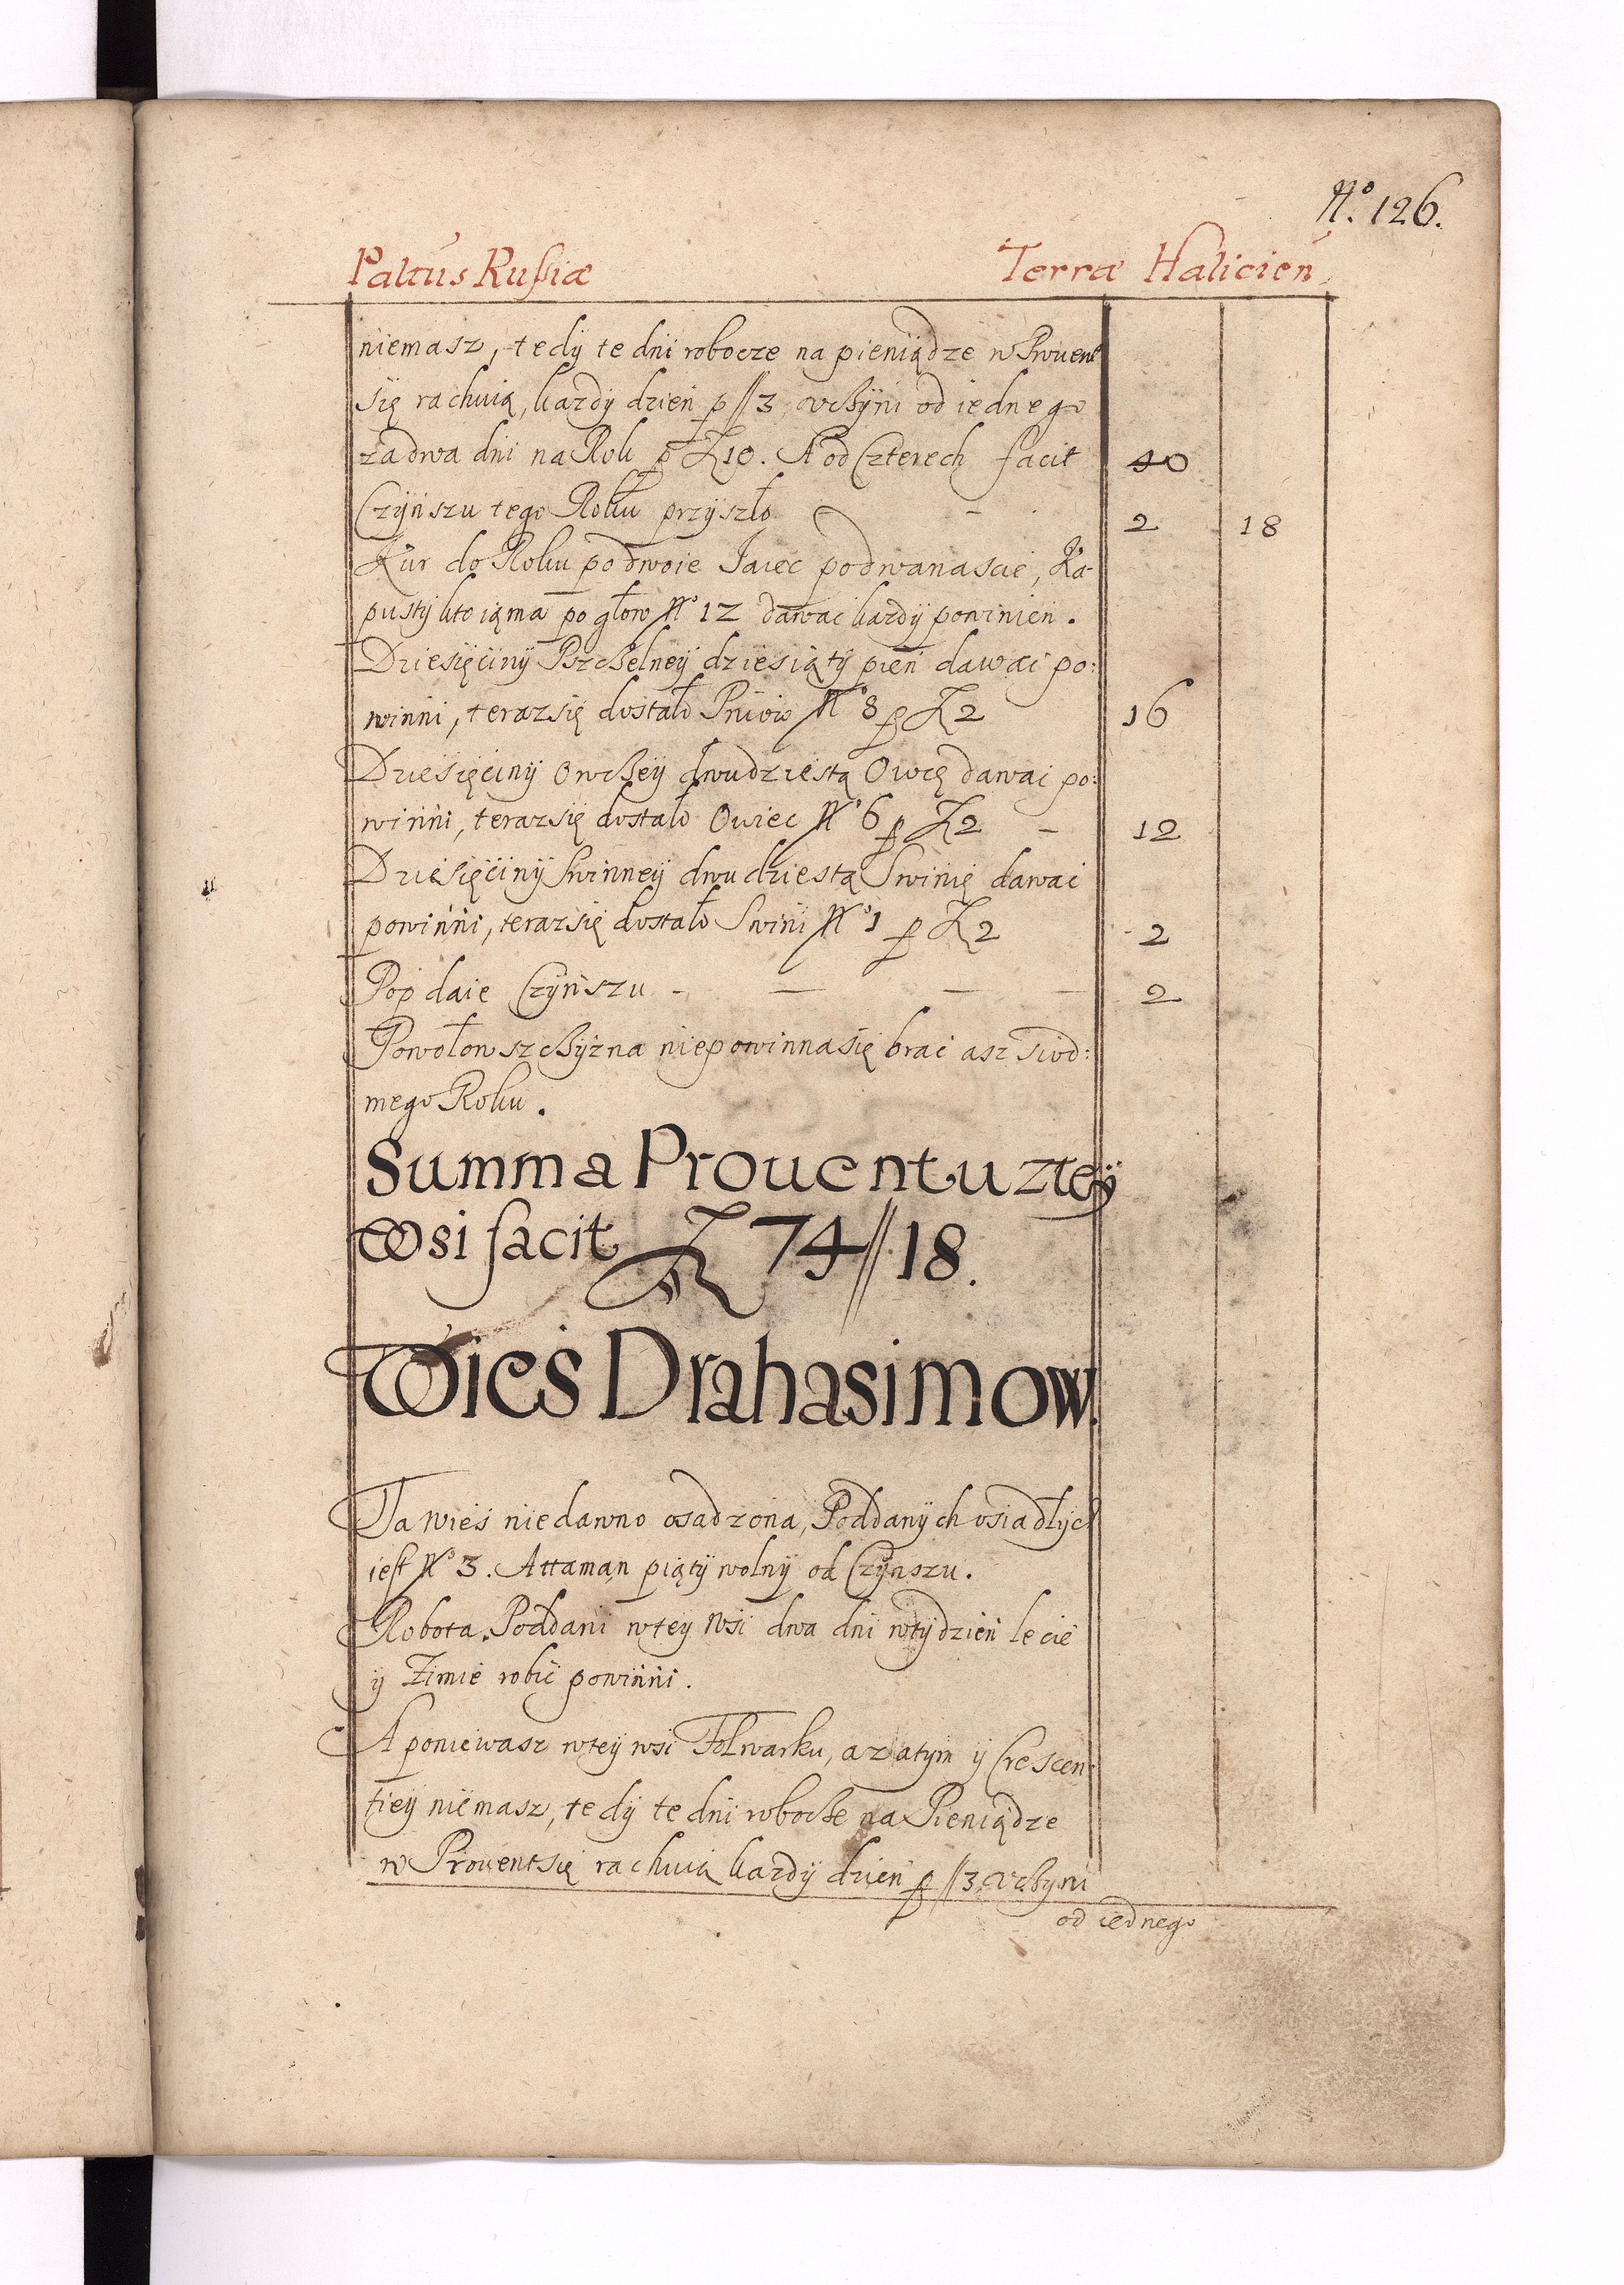 No. 126.
Paltus Rußiæ Terræ Halicien
niemasz, tedy te dni robocze na pieniądze w Prouent
się rachuią, kazdy dzień p // 3, vczyni od iednego
za dwa dni na Rok p Z 10. A od Czterech facit 40
Czyńszu tego Roku przyszło 2 18
Kur do Roku po dwoie Iaiec po dwanascie, Ka-
pusty kto ią ma po głow No 12 dawać kazdy powinien.
Dziesięciny Pszczelney dziesiąty pień dawać po:
winni, teraz się dostało Pniow No 8 p Z 2 16
Dziesięciny Owczey dwudziestą Owcę dawać po:
winni, teraz się dostało Owiec No 6 p Z 2 - 12
Dziesięciny Swinney dwudziestą Swinię dawać
powinni, teraz się dostało Swini No 1 p Z 2 2
Pop daie Czynszu - - - - 2
Powołowszczyzna niepowinna się brać asz siod:
mego Roku.
Summa Prouentu z tey
Wsi facit Z 74 // 18.
Wieś Drahasimow.
Ta Wieś niedawno osadzona, Poddanych osiadłych
iest No 3. Attaman piąty wolny od Czynszu.
Robota. Poddani w tey Wsi dwa dni w tydzień lecie
y Zimie robić powinni.
A poniewasz w tey wsi Folwarku, a zatym y Crescen:
tiey niemasz, tedy te dni robocze na Pieniądze
w Prouent się rachuią kazdy dzień p // 3, vczyni
od iednego